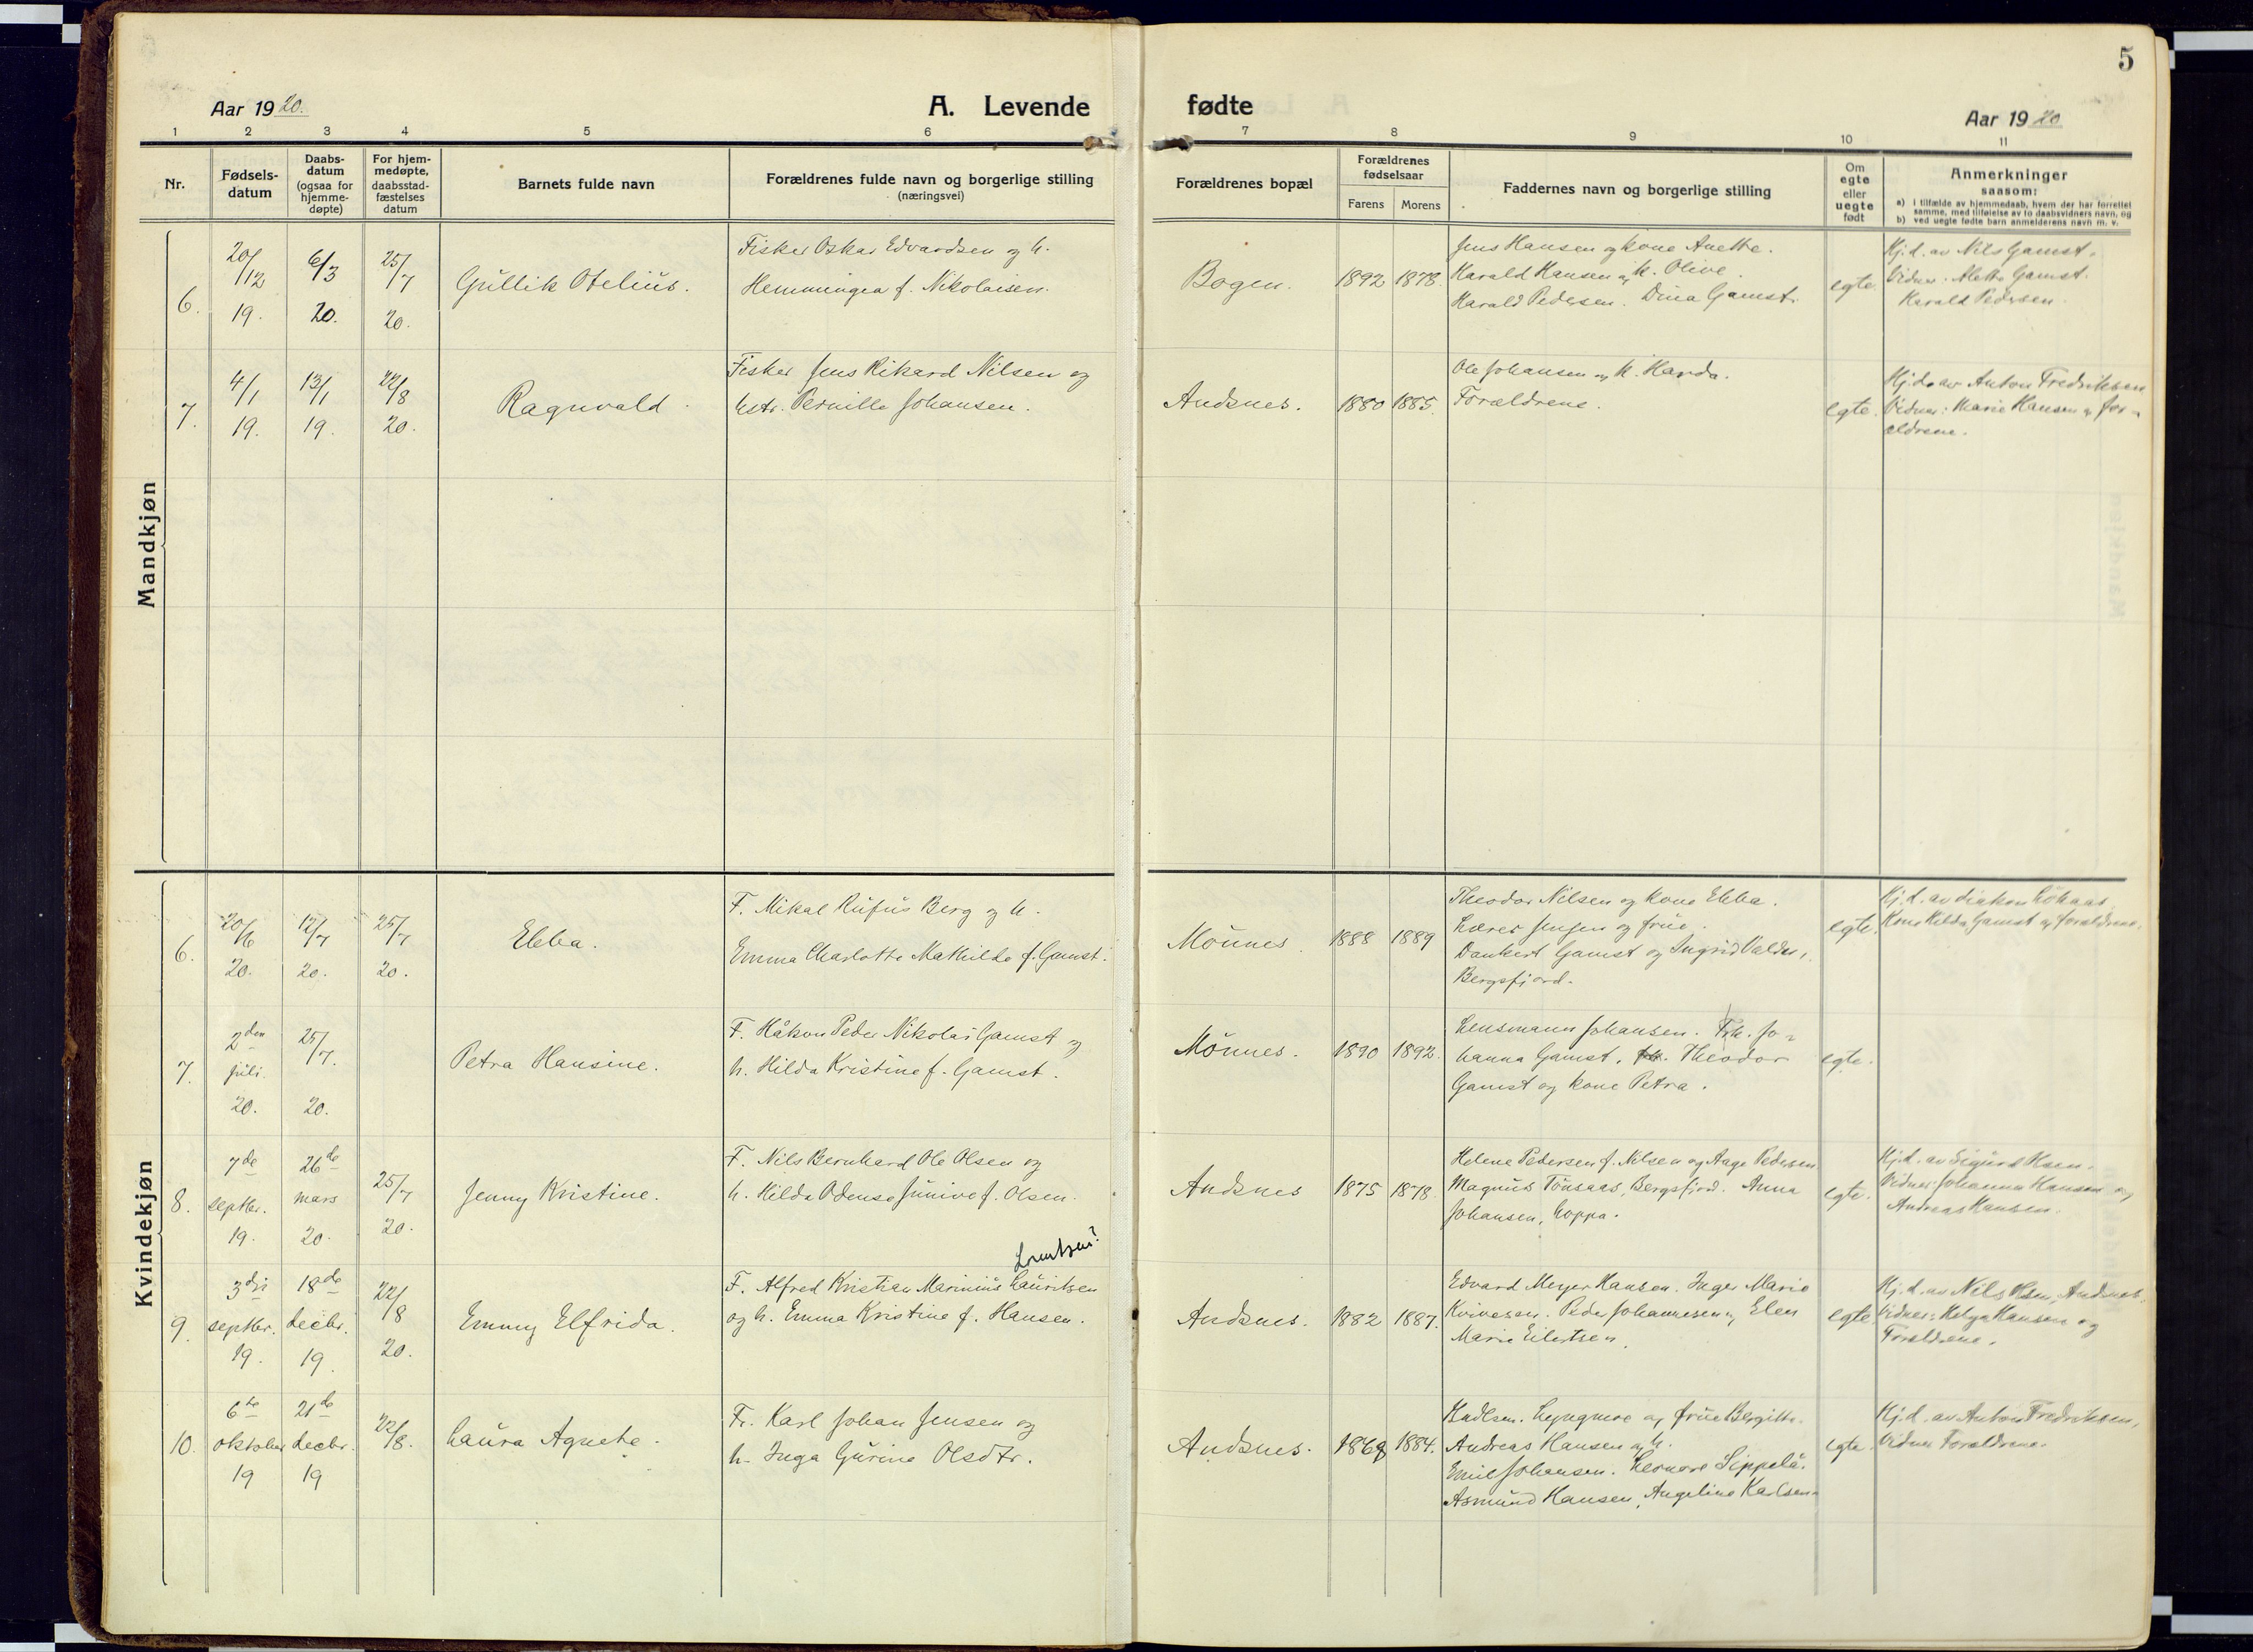 5
Aar 1920.
A. Levende
fødte
Aar 1920
1 2 3 4 5 6 7 8 9 10 11
Nr.
Fødsels-
datum
Daabs-
datum
(ogsaa for
hjemme-
døpte)
For hjem-
medøpte,
daabsstad-
fæstelses
datum
Barnets fulde navn
Forældrenes fulde navn og borgerlige stilling
(næringsvei)
Forældrenes bopæl
Forældrenes
fødselsaar
Farens Morens
Faddernes navn og borgerlige stilling
Om
egte
eller
uegte
født
Anmerkninger
saasom:
a) i tilfælde av hjemmedaab, hvem der har forrettet
samme, med tilføielse av to daabsvidners navn, og
b) ved uegte fødte barn anmelderens navn m. v.
Mandkjøn
6.
20/12
19.
6/3
20.
25/7
20.
Gullik Otelius.
Fisker Oskar Edvardsen og h.
Hemmingea f. Nikolaisen.
Bogen.
1892 1878.
Jens Hansen og kone Anette.
Harald Hansen og k. Olive.
Harald Pedersen. Dina Gamst.
egte.
Hj.d. av Nils Gamst.
Vidner: Alette Gamst.
Harald Pedersen.
7.
4/1
19.
13/1
19.
22/8
20.
Ragnvald.
Fisker Jens Rikard Nilsen og
hstr. Pernille Johansen.
Andsnes.
1880 1885.
Ole Johansen og k. Harda.
Forældrene.
egte.
Hj.d. av Anton Fredriksen
Vidner: Marie Hansen og for-
ældrene.
Kvindekjøn
6.
20/6
20.
12/7
20.
25/7
20.
Ebba.
F. Mikal Rufus Berg og h.
Emma Charlotte Mathilde f. Gamst.
Mönnes.
1888 1889
Theodor Nilsen og kone Ebba.
Lærer Jensen og frue.
Dankert Gamst og Ingrid Valder,
Bergsfjord.
egte.
Hj.d. av diakon
Kone Hilda Gamst og forældrene.
7.
2den
juli.
20.
25/7.
20.
Petra Hansine.
F. Håkon Peder Nikolai Gamst og
h. Hilda Kristine f. Gamst.
Mönnes.
1890 1892.
Lensmann Johansen. Frk. Jo-
hanna Gamst. Theodor
Gamst og kone Petra.
egte.
8.
7de
septbr.
19.
26de
mars
20.
25/7
20.
Jenny Kristine.
F. Nils Bernhard Ole Olsen og
h. Hilda Odense Junive f. Olsen.
Andsnes
1875 1878.
Helene Pedersen f. Nilsen og Aage Pedersen
Magnus Tönsaas, Bergsfjord. Anna
Johansen, Loppa.
egte.
Hj.d. av Sigurd Olsen.
Vidner: Johanna Hansen og
Andreas Hansen.
Lorntsen?
9.
3die
septbr.
19.
18de
decbr.
19.
22/8
20.
Emmy Elfrida.
F. Alfred Kristian Marinius Lauritsen
og h. Emma Kristine f. Hansen.
Andsnes.
1882 1887.
Edvard Meyer Hansen. Inger Marie
Kvivesen. Peder Johannesen og Elen
Marie Eilertsen.
egte.
Hj.d. av Nils Olsen, Andsnes.
Vidner: Helga Hansen og
Forældrene.
10.
6te
oktober
19
21de
decbr.
19
22/8.
Laura Agnete.
Fr. Karl Johan Jensen og
h. Inga Gurine Olsdtr.
Andsnes.
1869 1884.
Lyngmoe og frue Bergitte.
Andreas Hansen og h.
Emil Johansen. Leonore Seppelä.
Asmund Hansen, Angeline Karlsen.
egte.
Hj.d. av Anton Fredriksen,
Vidner Forældrene.